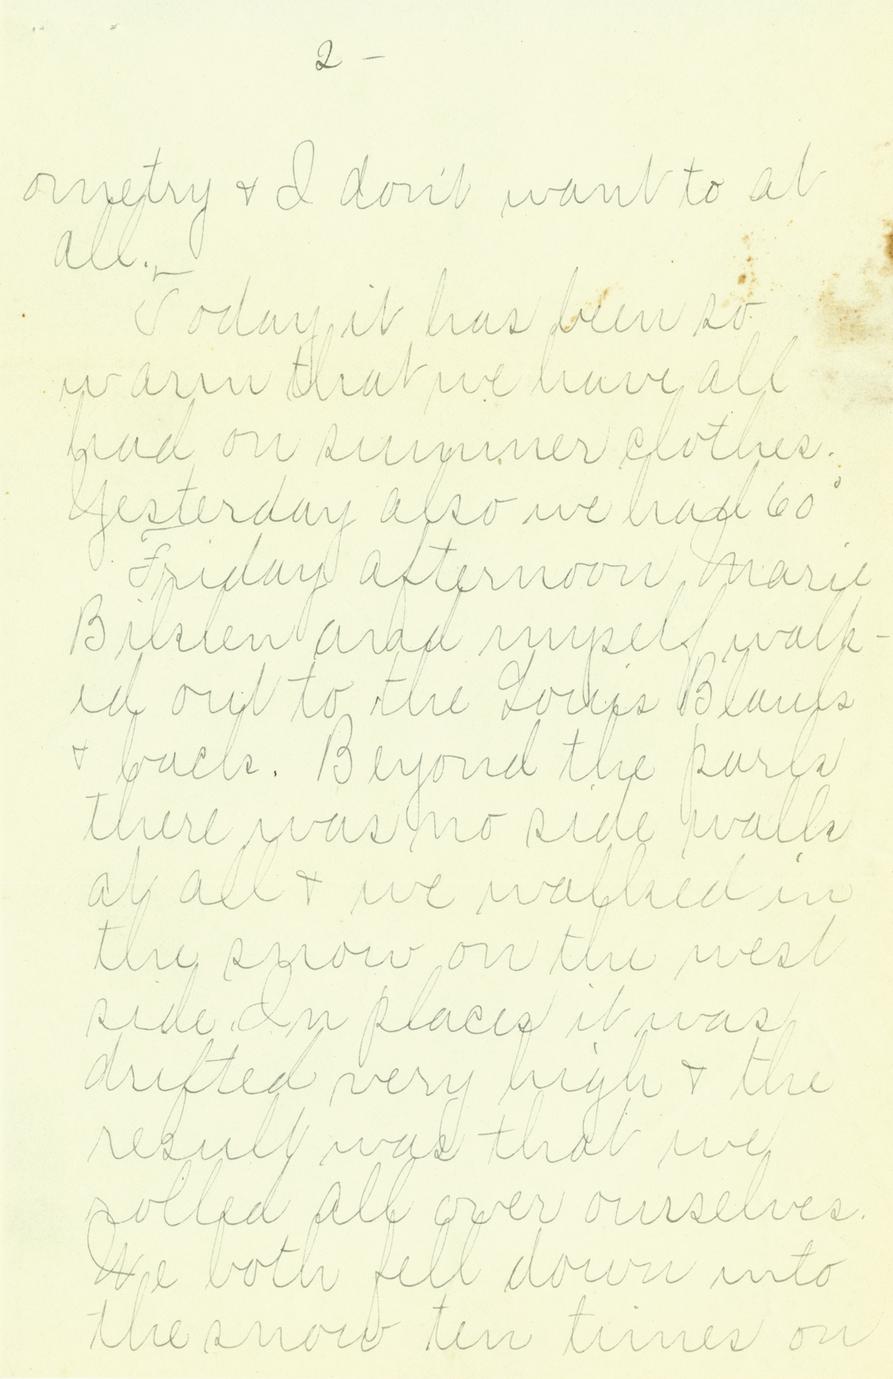 2 -
ometry & I don't want to at
all.
Today it has been so
warm that we have all
had on summer clothes.
Yesterday also we had 60°
Friday afternoon, Marie
Bilsien and myself walk-
ed out to the Louis Blauls
& back. Beyond the park
there was no side walk
at all & we walked in
the snow on the west
side. In places it was
drifted very high & the
result was that we
rolled all over ourselves.
We both fell down into
the snow ten times on